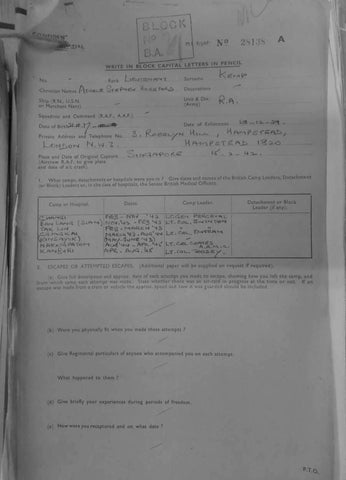 CONFIDENTIAL
BLOCK
No
B.A.
No 28138 A
WRITE IN BLOCK CAPITAL LETTERS IN PENCIL
No. Rank LIEUTENANT Surname KEMP
Christian Names STEPHEN Decorations
Ship (R.N., U.S.N. or Merchant Navy) Unit & Div. (Army) R.A.
Squadron and Command (R.A.F., A.A.F.)
Date of Birth Date of Enlistment
Private Address and Telephone No. 3, ROSSLYN HILL, HAMPSTEAD,
LONDON N.W.3. HAMPSTEAD 1320
Place and Date of Original Capture SINGAPORE 15.2.42.
(Airmen R.A.F. to give place and date of a/c crash).
1. What camps, detachments or hospitals were you in? Give dates and names of the British Camp Leaders, Detachment (or Block) Leaders or, in the case of hospitals, the Senior British Medical Officers.
Camp or Hospital. Dates Camp Leader. Detachment or Block Leader (if any).
CHANGI FEB - NOV '42 LT. GEN PERCIVAL
(SIAM) NOV '42 - FEB '43 LT. COL.
TAK LIN FEB - MARCH '43
MARCH '43 - AUG '44 LT. COL.
(MAY - JUNE '43)
AUG '44 - APL '45 LT. COL. COATES
A.A.M.C.
KANBURI APR - AUG '45 LT. COL. TOOSEY
2. ESCAPES OR ATTEMPTED ESCAPES. (Additional paper will be supplied on request if required).
(a) Give full description and approx. date of each attempt you made to escape, showing how you left the camp, and from which camp each attempt was made. State whether there was an air-raid in progress at the time or not. If an escape was made from a train or vehicle the approx. speed and how it was guarded should be included.
(b) Were you physically fit when you made these attempts?
(c) Give Regimental particulars of anyone who accompanied you on each attempt.
What happened to them?
(d) Give briefly your experiences during periods of freedom.
(e) How were you recaptured and on what date?
P.T.O.